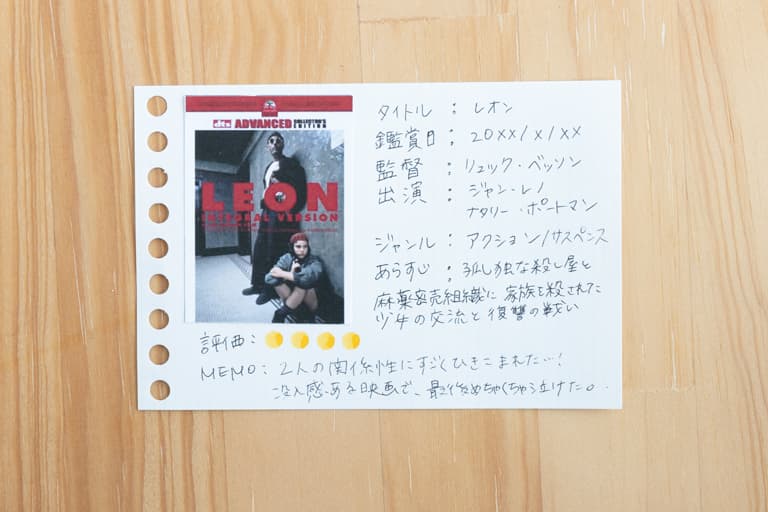 dts ADVANCED COLLECTOR'S EDITION
LEON
INTEGRAL VERSION
タイトル : レオン
鑑賞日 : 20xx/x/xx
監督 : リュック・ベッソン
出演 : ジャン・レノ
ナタリー・ポートマン
ジャンル : アクション/サスペンス
あらすじ : 孤独な殺し屋と
麻薬密売組織に家族を殺された
少女の交流と復讐の戦い
評価 :
MEMO : 2人の関係性にすごくひきこまれた…!
没入感ある映画で、最後めちゃくちゃ泣けた。